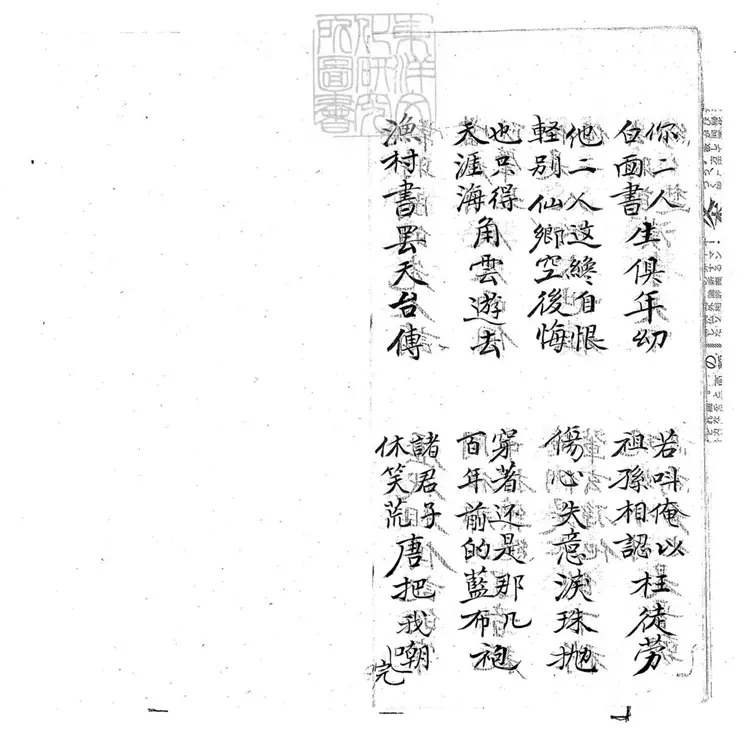 你二人
白面書生俱年幼
若呌俺以
祖孫相認枉徒劳
他二人这纔自恨
輕別仙鄉空後悔
傷心失意淚珠拋
也只得
天涯海角雲遊去
穿著还是那几
百年前的藍布袍
漁村書罢天台傳
諸君子
休笑荒唐把我嘲
完
東洋文
化研究
所圖書